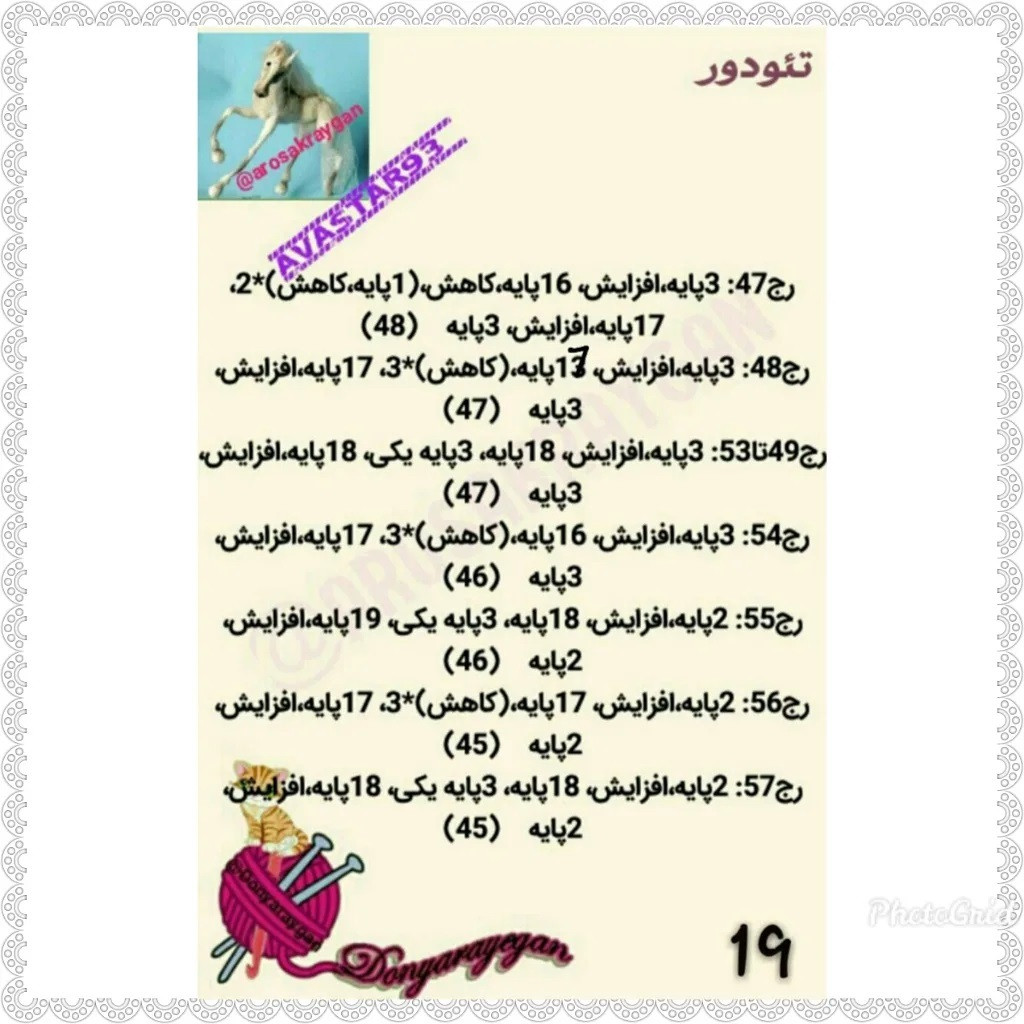 تئودور
@arosakraygan
AVASTAR93
رج47: 3پایه،افزایش، 16پایه،کاهش،(1پایه،کاهش)*2،
17پایه،افزایش، 3پایه (48)
رج48: 3پایه،افزایش، 17پایه،(کاهش)*3، 17پایه،افزایش،
3پایه (47)
رج49تا53: 3پایه،افزایش، 18پایه، 3پایه یکی، 18پایه،افزایش،
3پایه (47)
رج54: 3پایه،افزایش، 16پایه،(کاهش)*3، 17پایه،افزایش،
3پایه (46)
رج55: 2پایه،افزایش، 18پایه، 3پایه یکی، 19پایه،افزایش،
2پایه (46)
رج56: 2پایه،افزایش، 17پایه،(کاهش)*3، 17پایه،افزایش،
2پایه (45)
رج57: 2پایه،افزایش، 18پایه، 3پایه یکی، 18پایه،افزایش،
2پایه (45)
@AROSAKRAYGAN
Donyarayegan
19
PhotoGrid